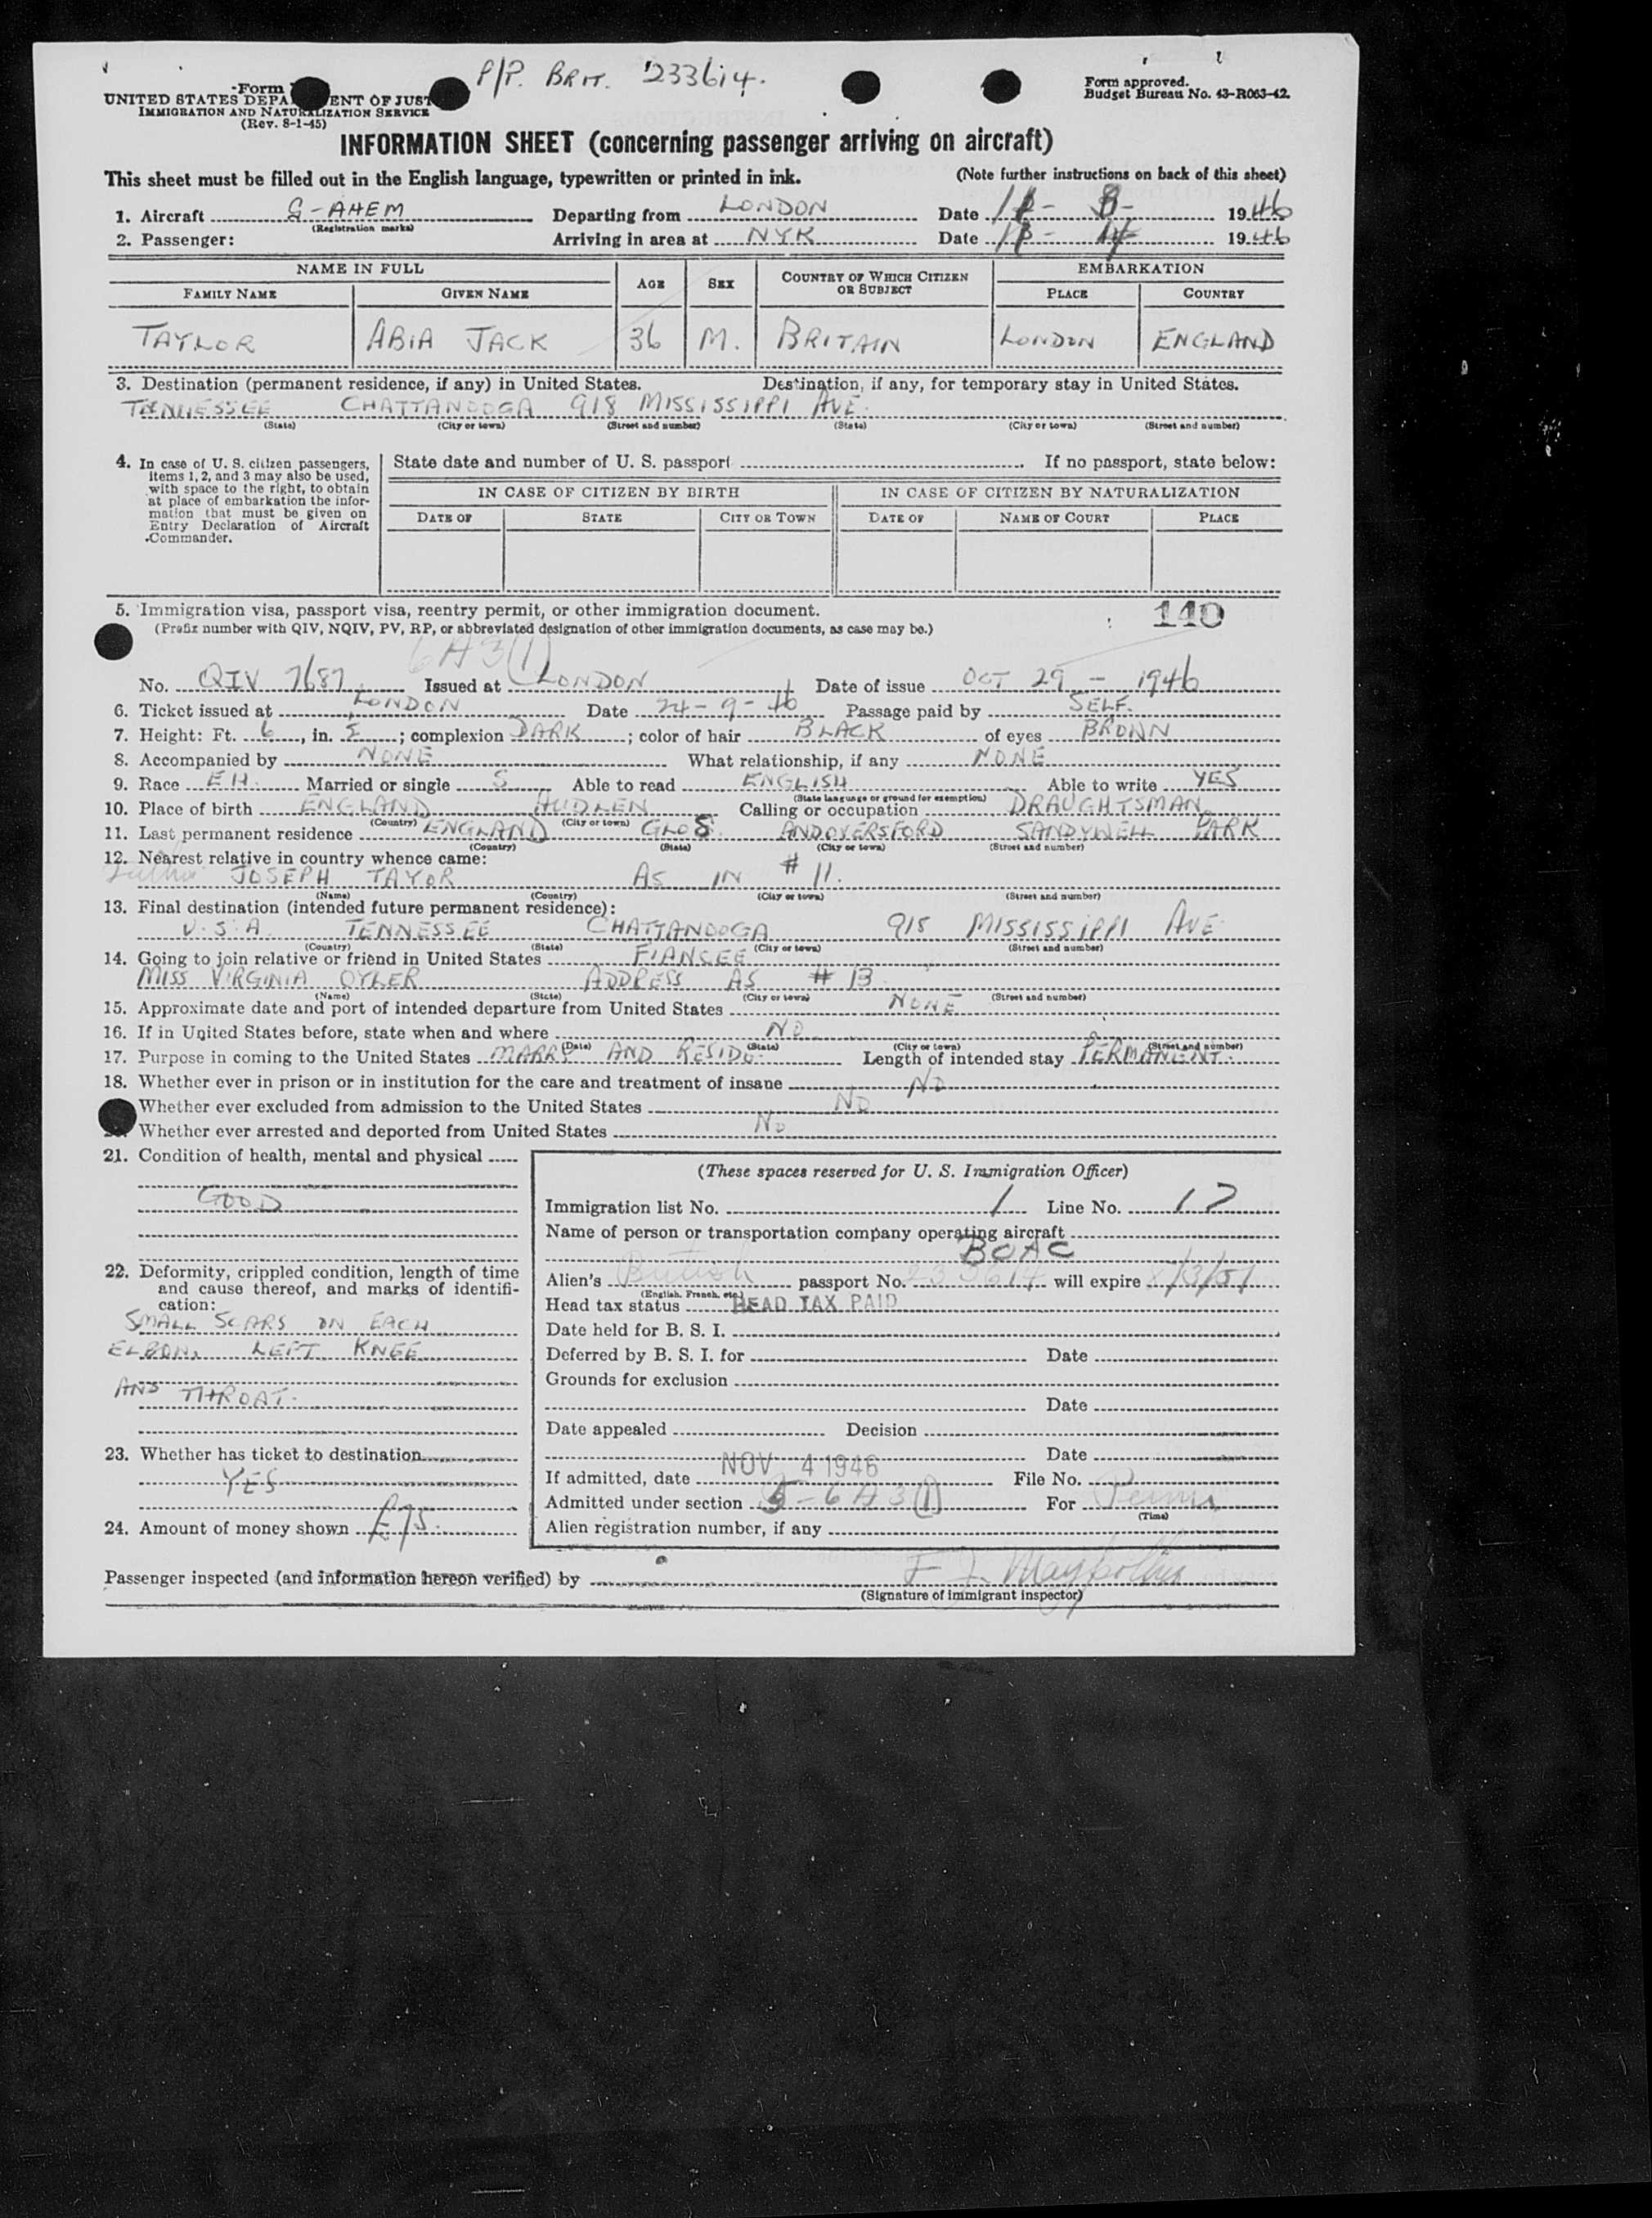 P/P. BRIT. 233614.
Form
UNITED STATES DEPA ENT OF JUST
IMMIGRATION AND NATURALIZATION SERVICE
(Rev. 8-1-45)
Form approved.
Budget Bureau No. 43-R063-42.
INFORMATION SHEET (concerning passenger arriving on aircraft)
This sheet must be filled out in the English language, typewritten or printed in ink. (Note further instructions on back of this sheet)
1. Aircraft G-AHEM Departing from LONDON Date 11- 3- 1946
(Registration marks)
2. Passenger: Arriving in area at NYK Date 11- 4 1946
NAME IN FULL AGE SEX COUNTRY OF WHICH CITIZEN OR SUBJECT EMBARKATION
FAMILY NAME GIVEN NAME PLACE COUNTRY
TAYLOR ABIA JACK 36 M. BRITAIN LONDON ENGLAND
3. Destination (permanent residence, if any) in United States. Destination, if any, for temporary stay in United States.
TENNESSEE CHATTANOOGA 918 MISSISSIPPI AVE.
(State) (City or town) (Street and number) (State) (City or town) (Street and number)
4. In case of U. S. citizen passengers, items 1, 2, and 3 may also be used, with space to the right, to obtain at place of embarkation the information that must be given on Entry Declaration of Aircraft Commander.
State date and number of U. S. passport If no passport, state below:
IN CASE OF CITIZEN BY BIRTH IN CASE OF CITIZEN BY NATURALIZATION
DATE OF STATE CITY OR TOWN DATE OF NAME OF COURT PLACE
5. Immigration visa, passport visa, reentry permit, or other immigration document. 140
(Prefix number with QIV, NQIV, PV, RP, or abbreviated designation of other immigration documents, as case may be.)
6A3(1)
No. QIV 7687 Issued at LONDON Date of issue OCT 29 - 1946
6. Ticket issued at LONDON Date 24-9-46 Passage paid by SELF.
7. Height: Ft. 6, in. ; complexion DARK; color of hair BLACK of eyes BROWN
8. Accompanied by NONE What relationship, if any NONE
9. Race EH. Married or single S Able to read ENGLISH Able to write YES
(State language or ground for exemption)
10. Place of birth ENGLAND Calling or occupation DRAUGHTSMAN
(Country) (City or town)
11. Last permanent residence ENGLAND GLOS ANDOVERSFORD SANDYWELL PARK
(Country) (State) (City or town) (Street and number)
12. Nearest relative in country whence came:
father JOSEPH TAYOR AS IN # 11.
(Name) (Country) (City or town) (Street and number)
13. Final destination (intended future permanent residence):
U.S.A. TENNESSEE CHATTANOOGA 918 MISSISSIPPI AVE
(Country) (State) (City or town) (Street and number)
14. Going to join relative or friend in United States FIANCEE
MISS VIRGINIA OYLER ADDRESS AS # 13.
(Name) (State) (City or town) (Street and number)
15. Approximate date and port of intended departure from United States NONE
16. If in United States before, state when and where NO
(Date) (State) (City or town) (Street and number)
17. Purpose in coming to the United States MARRY AND RESIDE. Length of intended stay PERMANENT.
18. Whether ever in prison or in institution for the care and treatment of insane NO
Whether ever excluded from admission to the United States NO
Whether ever arrested and deported from United States NO
21. Condition of health, mental and physical
GOOD
22. Deformity, crippled condition, length of time and cause thereof, and marks of identification:
SMALL SCARS ON EACH
ELBOW, LEFT KNEE
AND THROAT.
23. Whether has ticket to destination
YES
24. Amount of money shown £75.
(These spaces reserved for U. S. Immigration Officer)
Immigration list No. 1 Line No. 17
Name of person or transportation company operating aircraft
BOAC
Alien's British passport No. 233614 will expire /3/51
(English, French, etc.)
Head tax status HEAD TAX PAID
Date held for B. S. I.
Deferred by B. S. I. for Date
Grounds for exclusion
Date
Date appealed Decision
Date
If admitted, date NOV 4 1946 File No.
Admitted under section 5-6A3(1) For Perm
(Time)
Alien registration number, if any
Passenger inspected (and information hereon verified) by
(Signature of immigrant inspector)